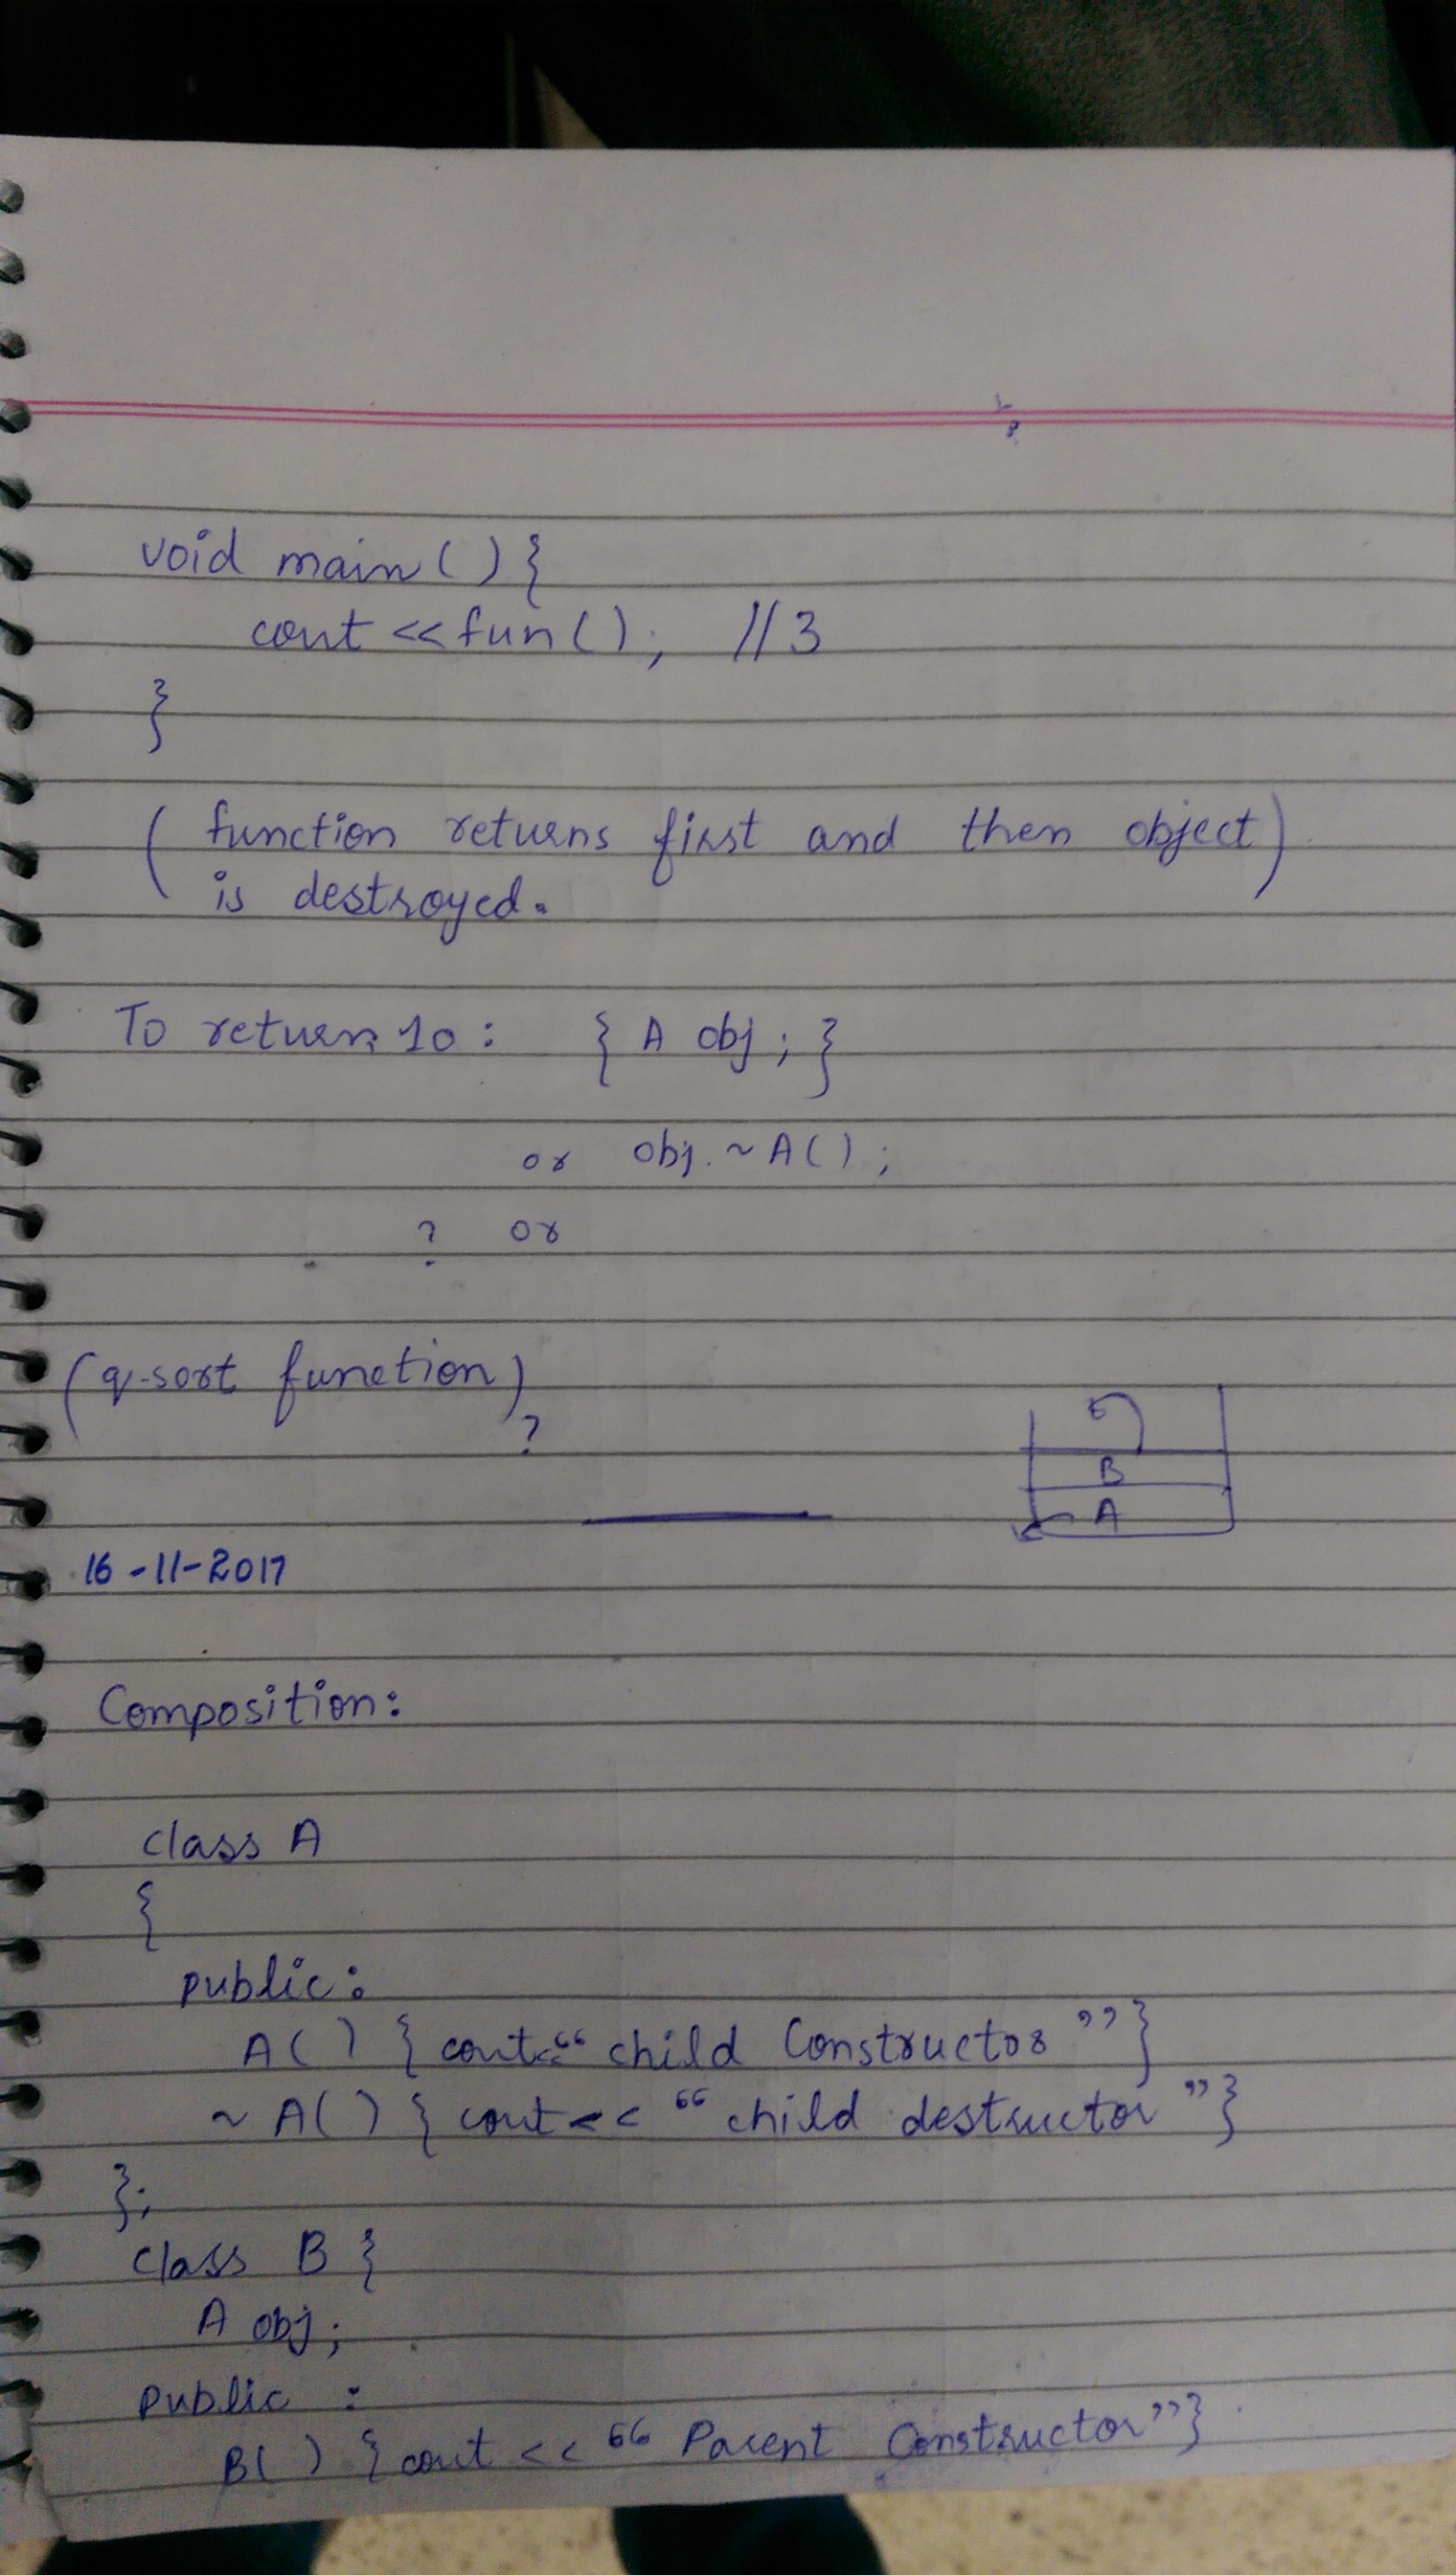 void main () {
cout << fun () ; //3
}
( function returns first and then object )
is destroyed.
To return 10 : { A obj ; }
or obj. ~ A ( ) ;
? or
(q-sort function)
?
B
A
16-11-2017
Composition:
class A
{
public :
A ( ) { cout<< “ child Constructor ” }
~ A ( ) { cout << “ child destructor ” }
};
class B {
A obj ;
public :
B ( ) { cout << “ Parent Constructor ” }